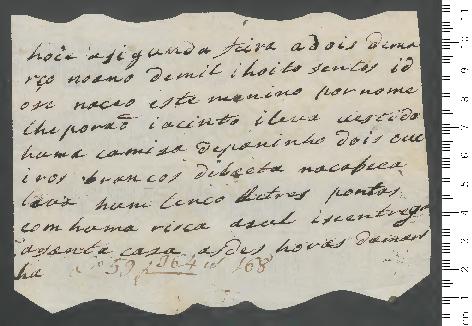 hoie asigunda feira adois dema
rço noano demil ihoito sentos id
ose naceo este menino por nome
lhe poraõ iacinto ileva vestido
huma camiza depaninho dois cue
iros brancos dibaeta nacabeca
leva hum lenco detres pontas
com huma risca azul iseentrega
asanta casa asdes horas daman
ha
Nº 59 f 164 168